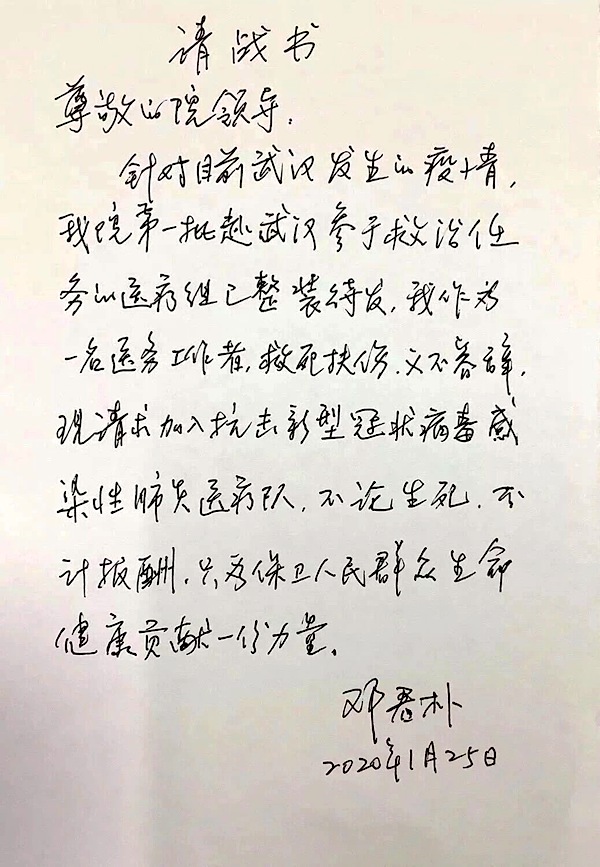 请战书
尊敬的院领导,
针对目前武汉发生的疫情,
我院第一批赴武汉参于救治任
务的医疗组已整装待发,我作为
一名医务工作者,救死扶伤,义不容辞,
现请求加入抗击新型冠状病毒感
染性肺炎医疗队,不论生死,不
计报酬,只为保卫人民群众生命
健康贡献一份力量。
邓春朴
2020年1月25日